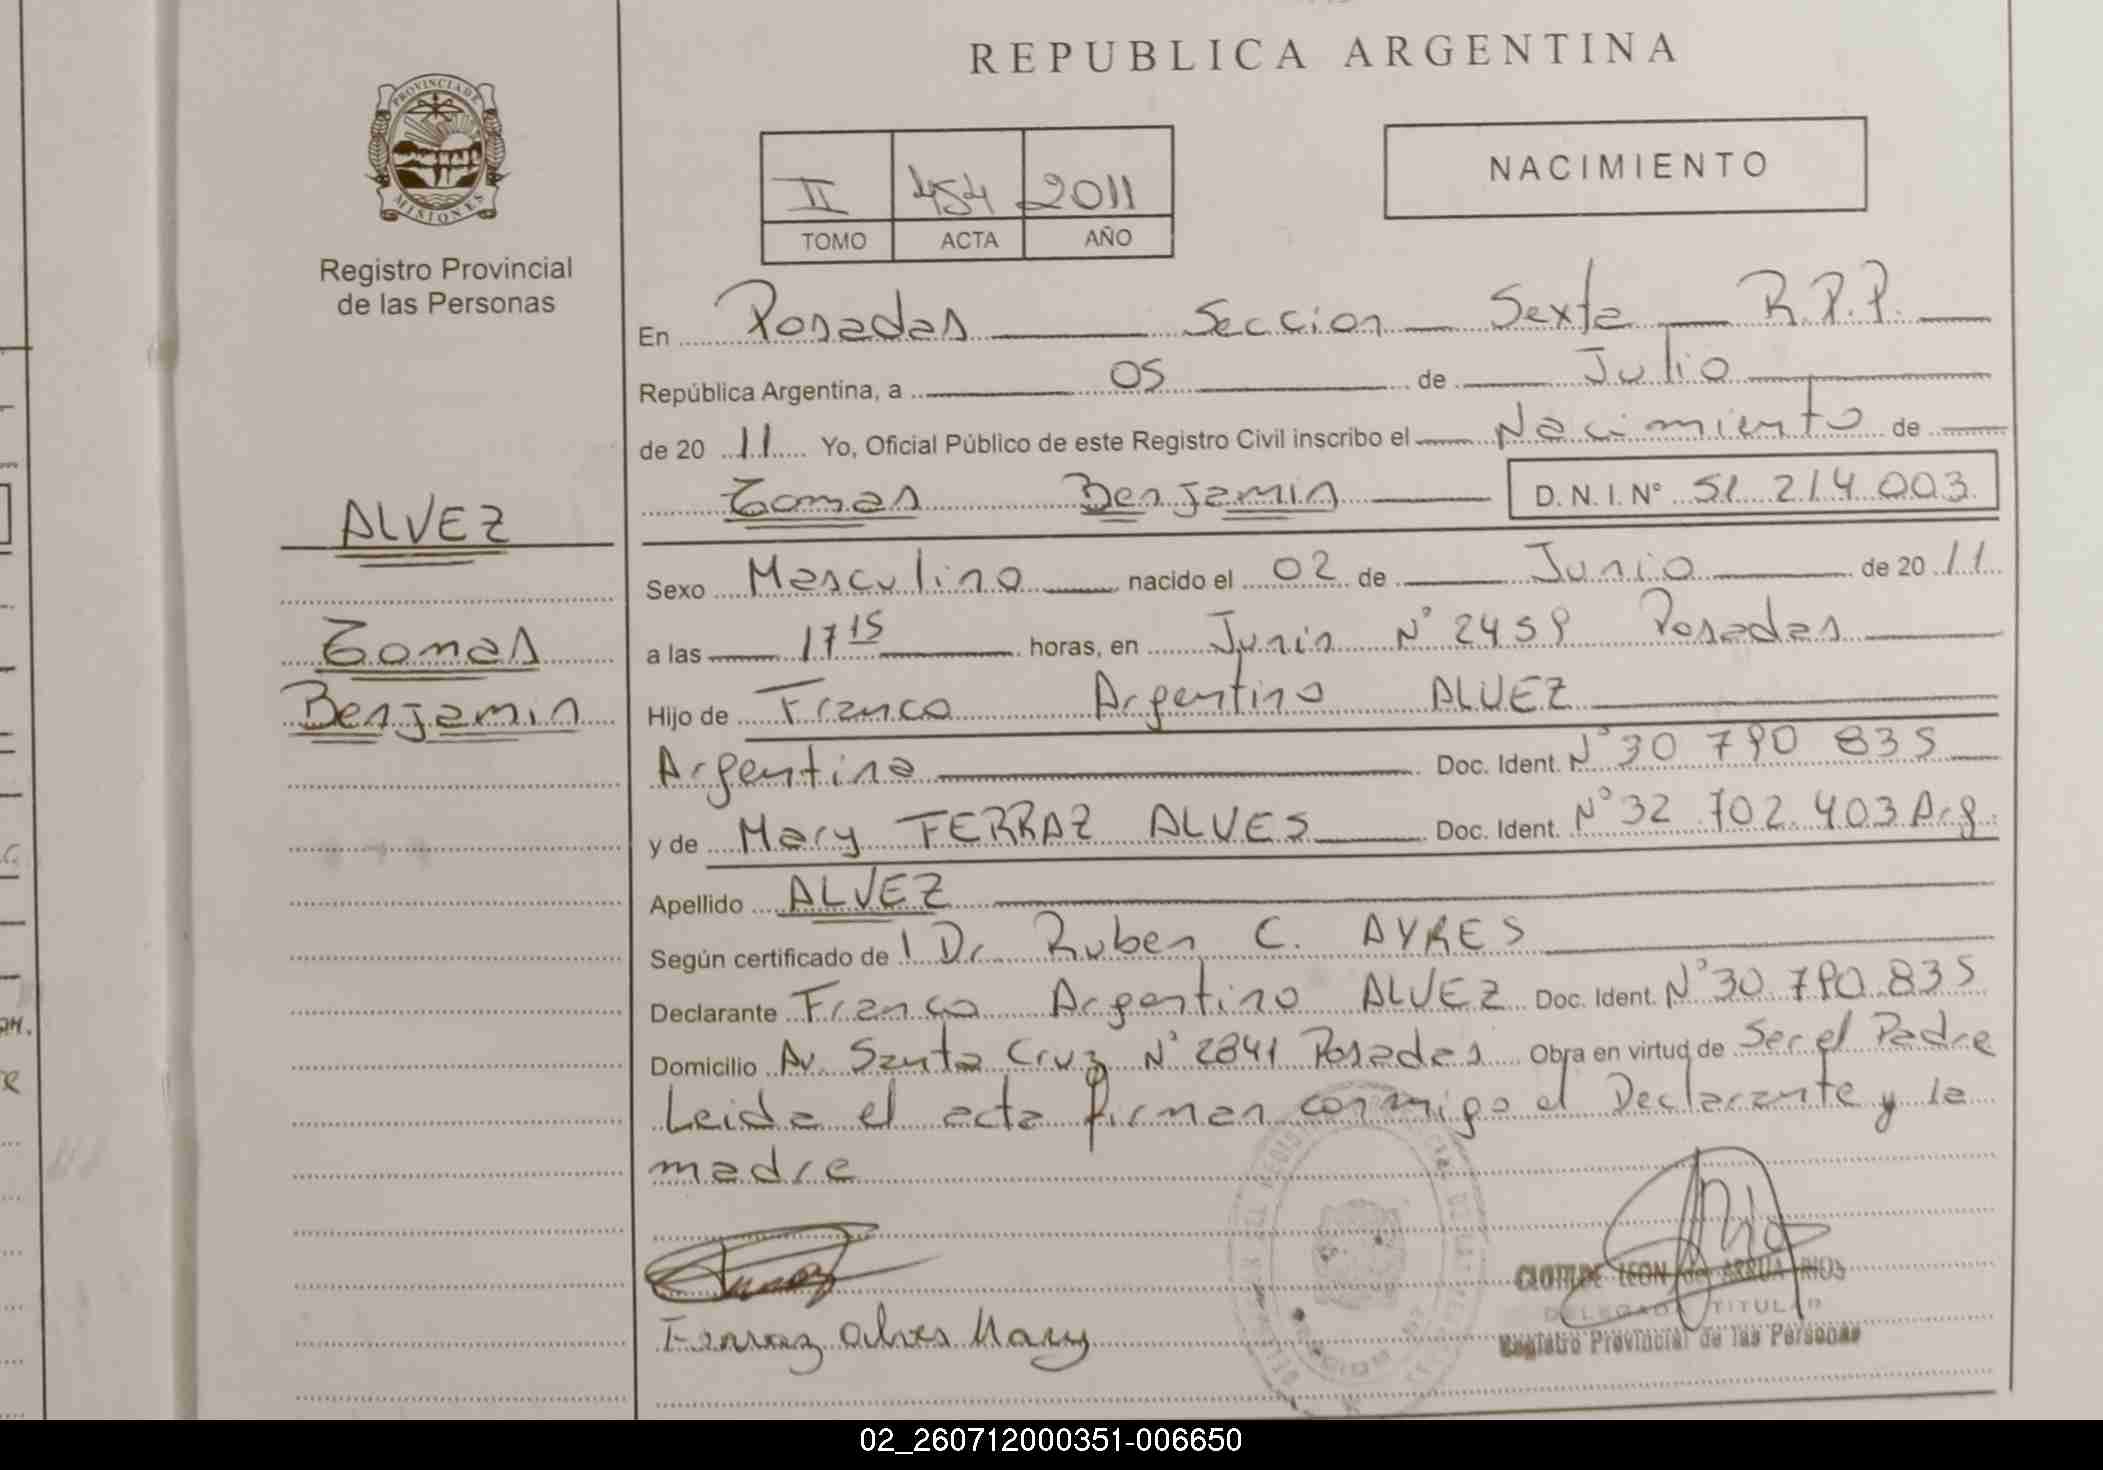 REPUBLICA ARGENTINA
PROVINCIA DE
MISIONES
Registro Provincial
de las Personas
II 454 2011
TOMO ACTA AÑO
NACIMIENTO
En Posadas Seccion Sexta R.P.P.
República Argentina, a 05 de Julio
de 20 11 Yo, Oficial Público de este Registro Civil inscribo el Nacimiento de
Tomas Benjamin D.N.I. Nº 51 214 003
ALVEZ
Tomas
Benjamin
Sexo Masculino nacido el 02 de Junio de 20 11
a las 17 15 horas, en Junin Nº 2459 Posadas
Hijo de Franco Argentino ALVEZ
Argentina Doc. Ident. Nº 30 790 835
y de Mary FERRAZ ALVES Doc. Ident. Nº 32 702.403 Arg.
Apellido ALVEZ
Según certificado de l Dr. Ruben C. AYRES
Declarante Franco Argentino ALVEZ Doc. Ident. Nº 30 790.835
Domicilio Av. Santa Cruz Nº 2841 Posadas Obra en virtud de Ser el Padre
Leida el acta firman conmigo el Declarante y la
madre
Ferraz alves Mary
CLOTILDE LEON de ARRUA RIOS
DELEGADA TITULAR
Registro Provincial de las Personas
02_260712000351-006650